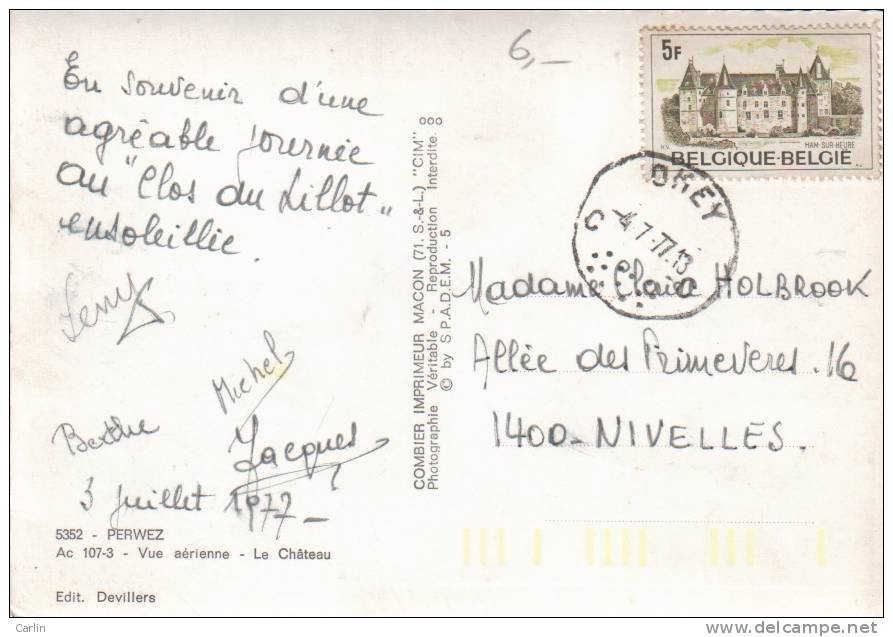 6,-
5F
HAM-SUR-HEURE
BELGIQUE-BELGIË
OHEY
-4.7.77.13
C C
En souvenir d'une
agréable journée
au "Clos du Lillot"
ensoleillie
Michel
Berthe
Jacques
3 juillet 1977-
5352 - PERWEZ
Ac 107-3 - Vue aérienne - Le Château
Edit. Devillers
COMBIER IMPRIMEUR MACON (71. S.-&-L.) "CIM"
Photographie Véritable - Reproduction Interdite.
© by S.P.A.D.E.M. - 5
Madame Claire HOLBROOK
Allée des Primeveres. 16
1400-NIVELLES.
Carlin
www.delcampe.net